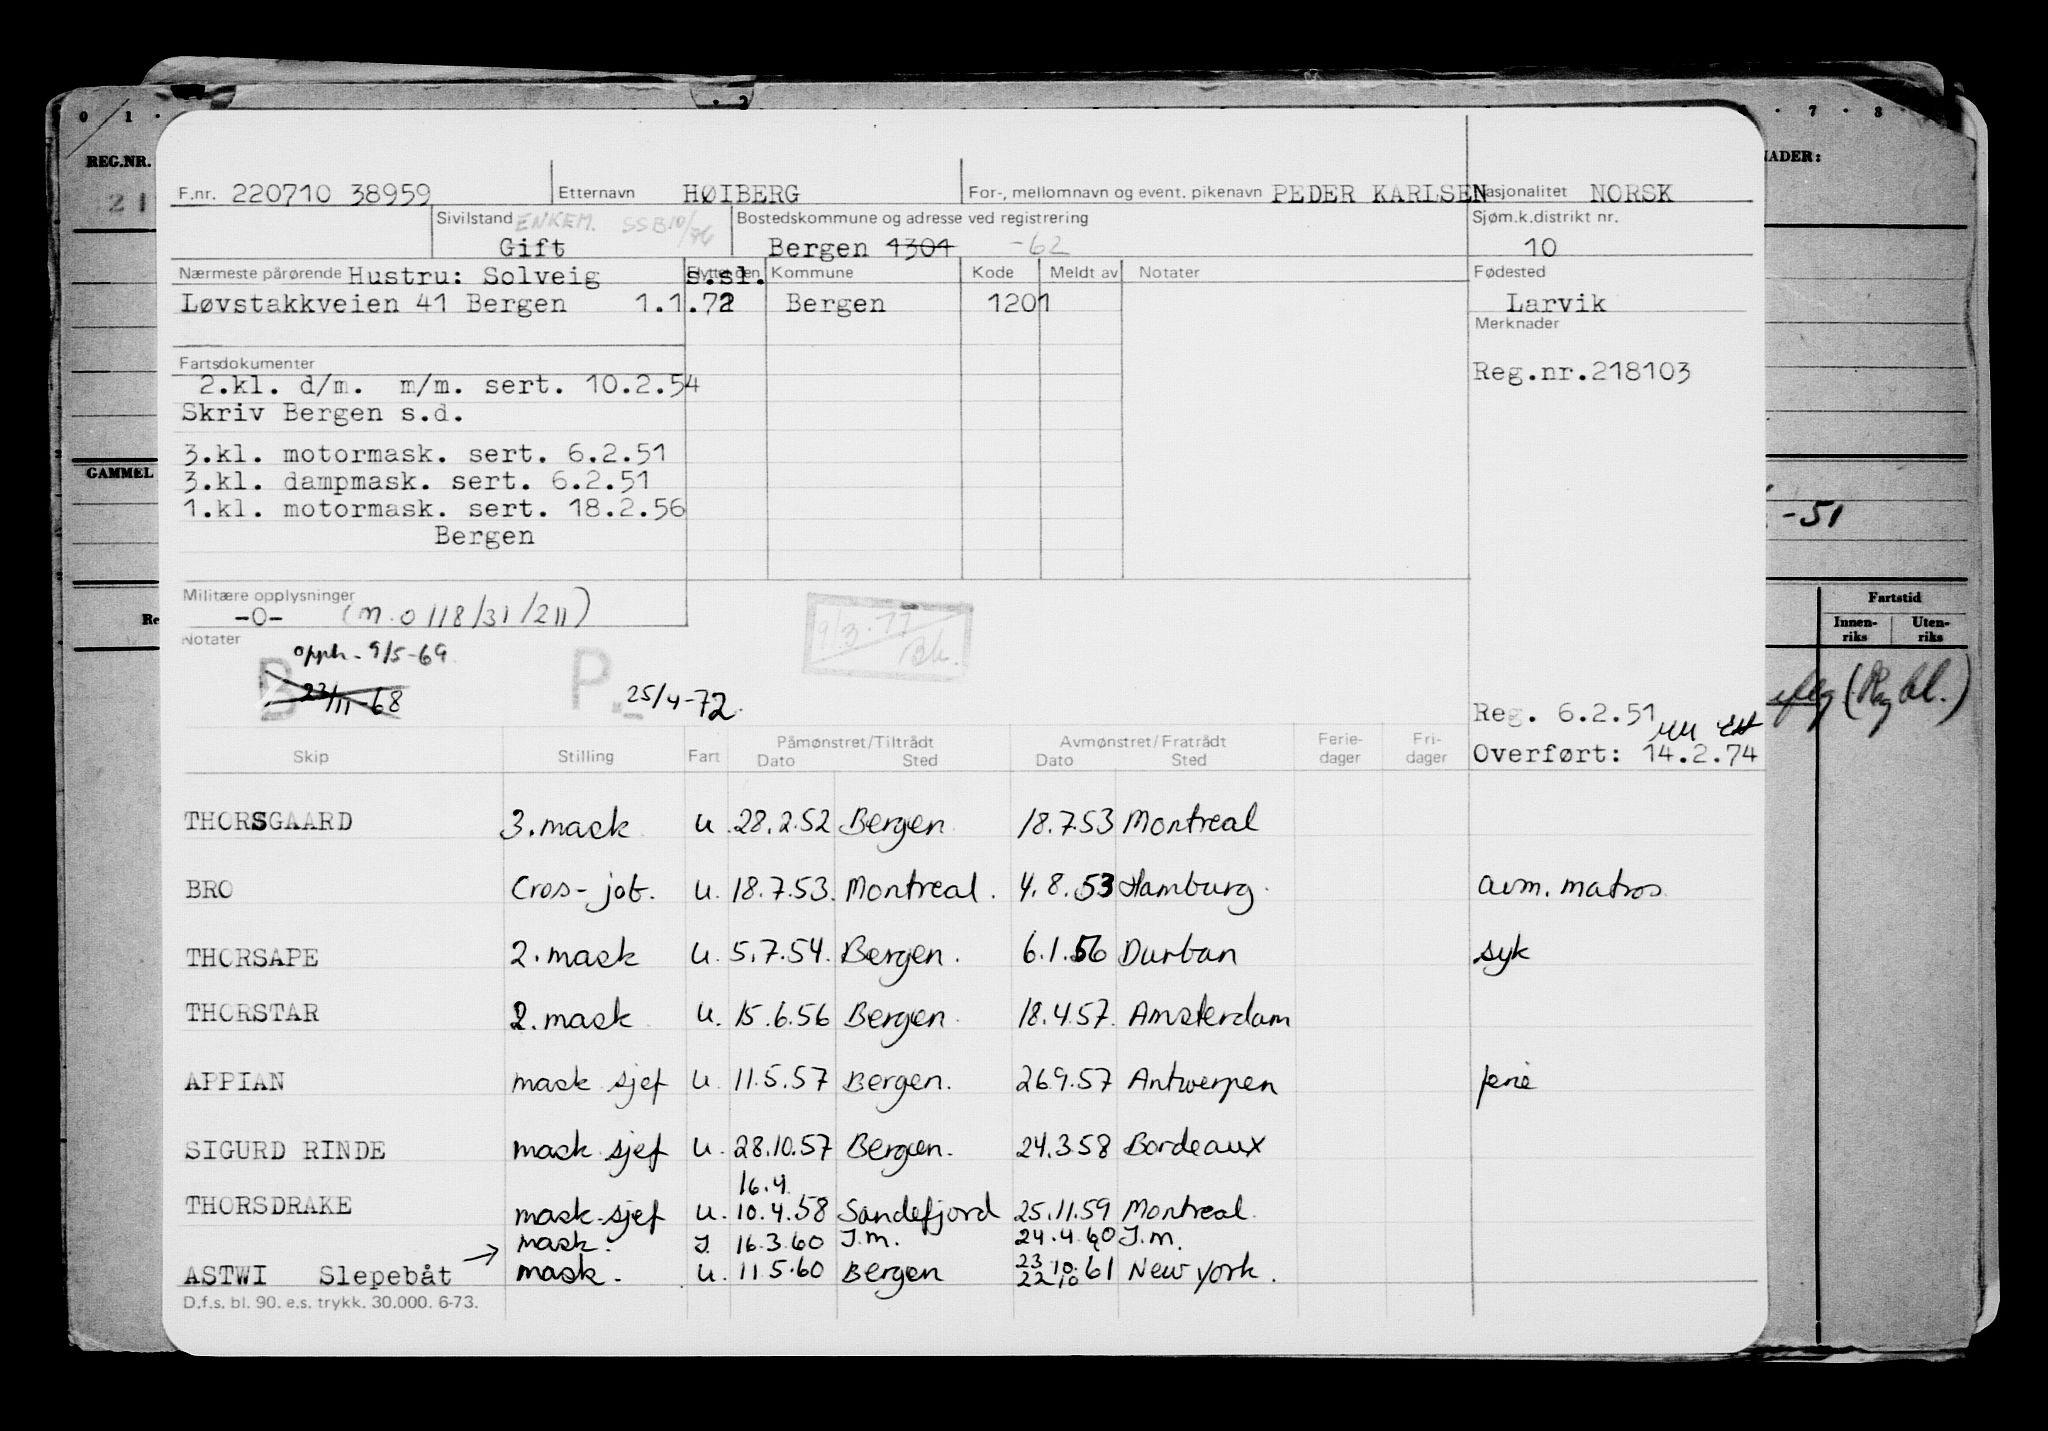 0 1 · · 2 · 7 · 8
REG.NR.
21
NADER:
F.nr. 220710 38959 Etternavn HØIBERG For-, mellomnavn og event. pikenavn PEDER KARLSEN Nasjonalitet NORSK
Sivilstand ENKEM. SSB 10/76 Bostedskommune og adresse ved registrering Sjøm.k.distrikt nr.
Gift Bergen 1301 -62 10
Nærmeste pårørende Hustru: Solveig s.sl. Flyttet den Kommune Kode Meldt av Notater Fødested
Løvstakkveien 41 Bergen 1.1.72 Bergen 1201 Larvik
Merknader
Fartsdokumenter
2.kl. d/m. m/m. sert. 10.2.54 Reg.nr.218103
Skriv Bergen s.d.
3.kl. motormask. sert. 6.2.51
GAMMEL
3.kl. dampmask. sert. 6.2.51
1.kl. motormask. sert. 18.2.56
-51
Bergen
Militære opplysninger
-0- (M.0118/31/211)
Fartstid
Innen-riks Uten-riks
Re
9/3.77
Notater
opph. 9/5-69
B 22/11-68 P. 25/4-72.
(Rg bl.)
Reg. 6.2.51
Overført: 14.2.74
Skip Stilling Fart Påmønstret/Tiltrådt Dato Sted Avmønstret/Fratrådt Dato Sted Ferie-dager Fri-dager
THORSGAARD 3. mask u. 28.2.52 Bergen 18.7.53 Montreal
BRO Cros-job. u. 18.7.53. Montreal. 4.8.53 Hamburg. avm. matros
THORSAPE 2. mask u. 5.7.54. Bergen. 6.1.56 Durban syk
THORSTAR 2. mask u. 15.6.56 Bergen. 18.4.57. Amsterdam
APPIAN mask sjef u. 11.5.57 Bergen. 26.9.57 Antwerpen ferie
SIGURD RINDE mask sjef u. 28.10.57 Bergen. 24.3.58 Bordeaux
16.4.
THORSDRAKE mask.sjef u. 10.4.58 Sandefjord 25.11.59 Montreal.
mask. I. 16.3.60 I.m. 24.4.60 I.m.
ASTWI Slepebåt → mask. u. 11.5.60 Bergen 23/10 22/10 61 New york.
D.f.s. bl. 90. e.s. trykk. 30.000. 6-73.